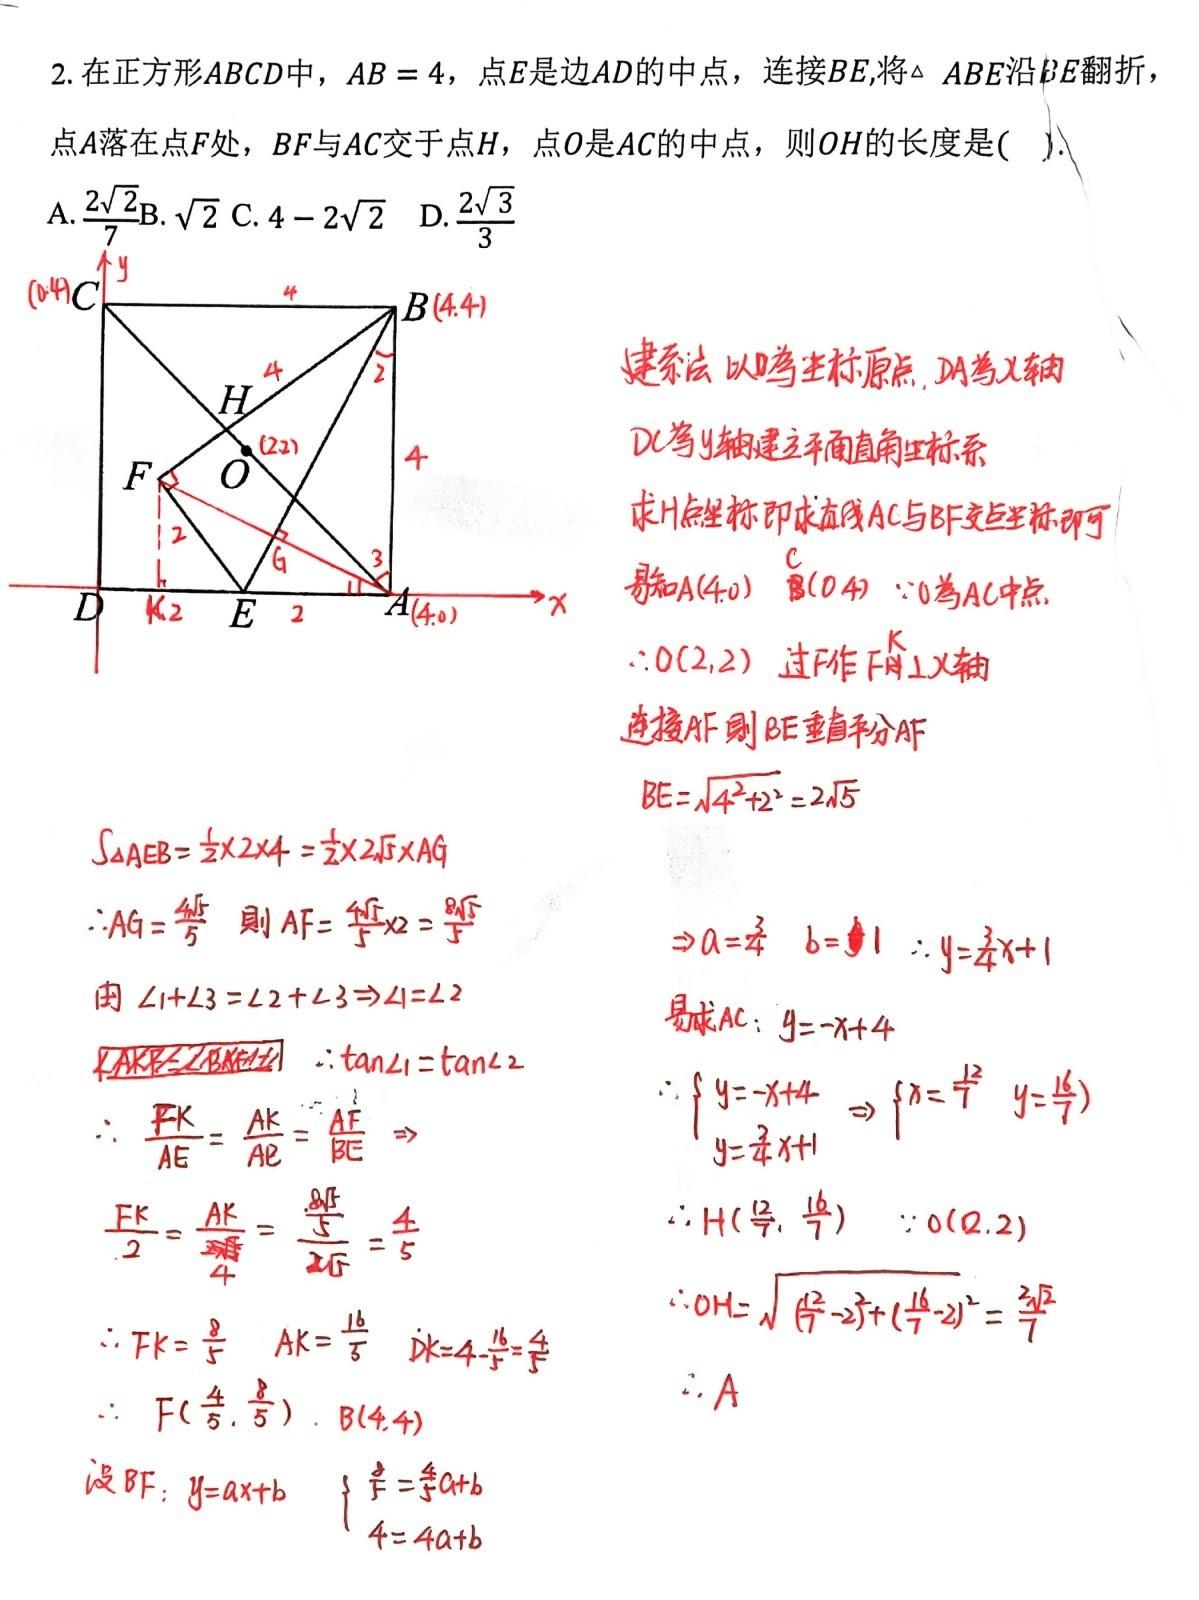 2. 在正方形ABCD中，AB = 4，点E是边AD的中点，连接BE,将△ ABE沿BE翻折，
点A落在点F处，BF与AC交于点H，点O是AC的中点，则OH的长度是(   ).
A. 2√2/7 B. √2 C. 4 − 2√2 D. 2√3/3
y
(0.4) C 4 B (4.4)
4 2
H
(2.2)
F O 4
2 G 3
1
D K 2 E 2 A (4.0) x
建系法 以D為坐标原点, DA為X轴
DC為y轴建立平面直角坐标系
求H点坐标即求直线AC与BF交点坐标即可
易知A(4.0) C(0 4) ∵O為AC中点
∴O(2,2) 过F作FK⊥X轴
连接AF 則BE垂直平分AF
BE=√(4²+2²)=2√5
S△AEB=1/2×2×4=1/2×2√5×AG
∴AG=4√5/5 則AF=4√5/5×2=8√5/5
由∠1+∠3=∠2+∠3⇒∠1=∠2
∴tan∠1=tan∠2
∴ FK/AE=AK/AB=AF/BE ⇒
FK/2=AK/4=(8√5/5)/(2√5)=4/5
∴FK=8/5 AK=16/5 DK=4-16/5=4/5
∴ F(4/5, 8/5). B(4.4)
设BF: y=ax+b { 8/5=4/5a+b
4=4a+b
⇒a=3/4 b=1 ∴y=3/4x+1
易求AC: y=-x+4
∴ { y=-x+4 ⇒ { x=12/7 y=16/7 )
y=3/4x+1
∴H(12/7, 16/7) ∵O(2.2)
∴OH=√((12/7-2)²+(16/7-2)²)=2√2/7
∴A